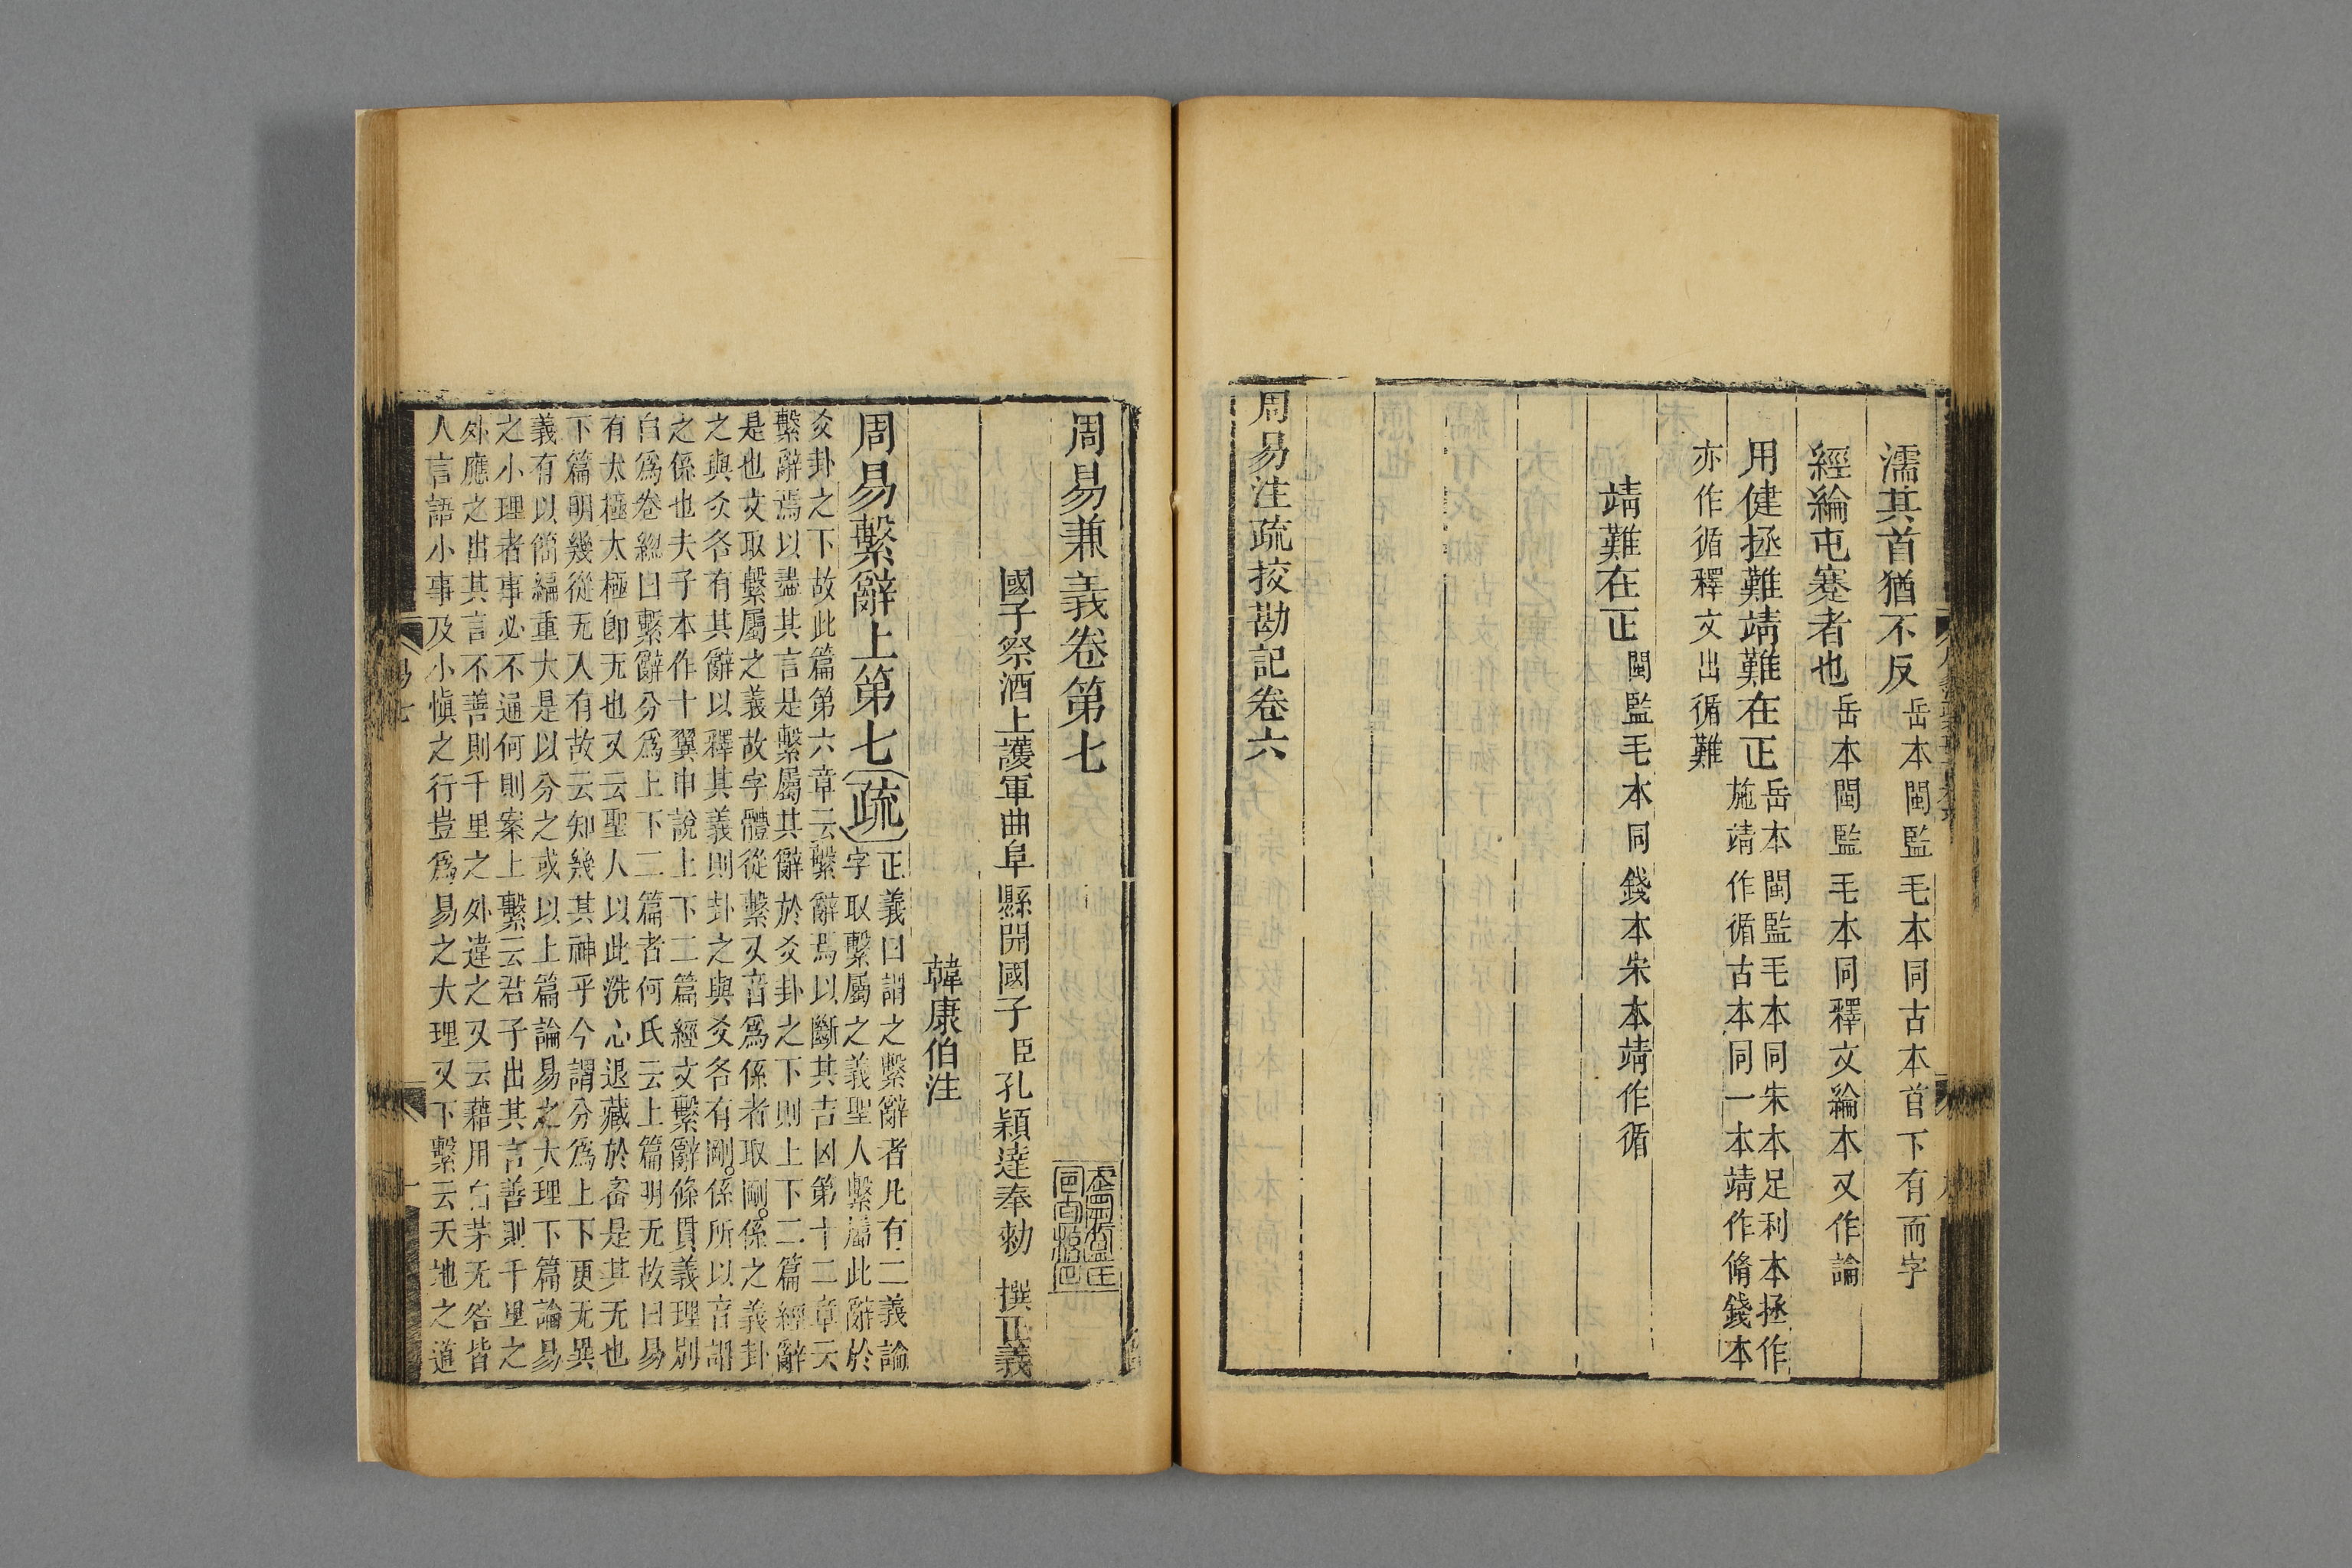 濡其首猶不反岳本閩監毛本同古本首下有而字
經綸屯蹇者也岳本閩監毛本同釋文綸本又作論
用健拯難靖難在正岳本閩監毛本同朱本足利本拯作
施靖作循古本同一本靖作脩錢本
亦作循釋文出循難
靖難在正閩監毛本同錢本宋本靖作循
周易注疏挍勘記卷六
周易兼義卷第七
國子祭酒上護軍曲阜縣開國子臣孔穎達奉勑撰正義
韓康伯注
周易繫辭上第七疏正義曰謂之繫辭者凡有二義論
字取繫屬之義聖人繫屬此辭於
爻卦之下故此篇第六章云繫辭焉以斷其吉凶第十二章云
繫辭焉以盡其言是繫屬其辭於爻卦之下則上下二篇經辭
是也文取繫屬之義故字體從繫又音爲係者取剛係之義卦
之與爻各有其辭以釋其義則卦之與爻各有剛係所以音謂
之係也夫子本作十翼申說上下二篇經文繫辭條貫義理別
自爲卷緫曰繫辭分爲上下二篇者何氏云上篇明无故曰易
有太極太極卽无也又云聖人以此洗心退藏於密是其无也
下篇明幾從无入有故云知幾其神乎今謂分爲上下更无異
義有以簡編重大是以分之或以上篇論易之大理下篇論易
之小理者事必不通何則案上繫云君子出其言善則千里之
外應之出其言不善則千里之外違之又云藉用白茅无咎皆
人言語小事及小愼之行豈爲易之大理又下繫云天地之道
易七